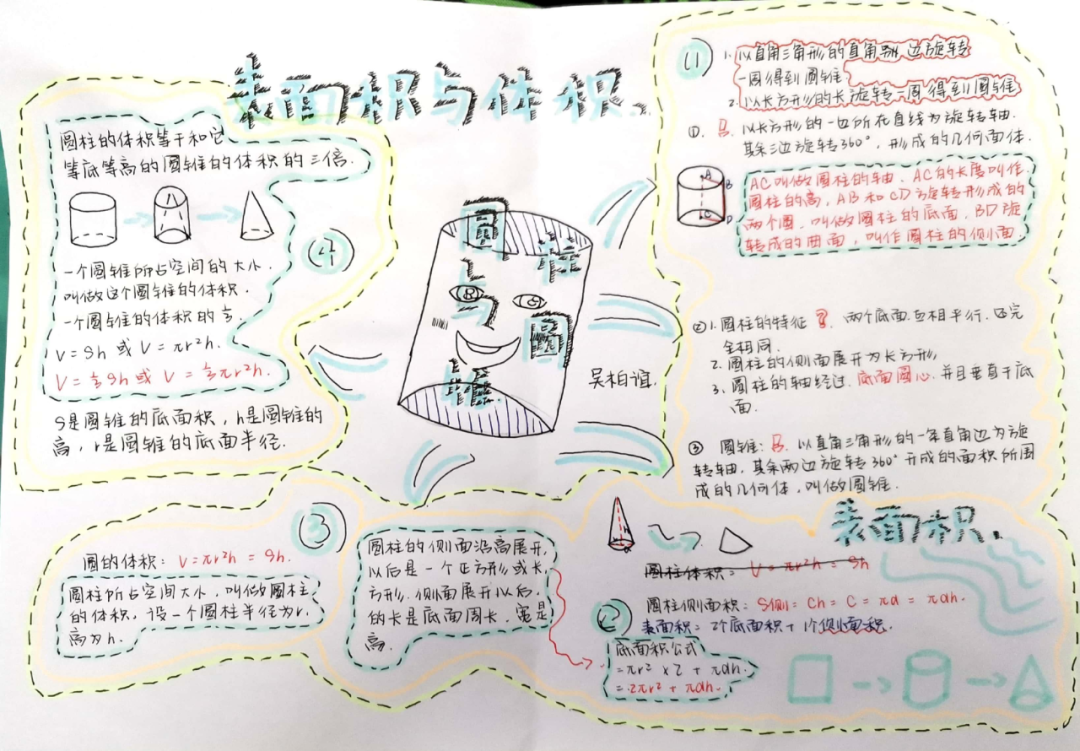 表面积与体积.
圆柱的体积等于和它
等底等高的圆锥的体积的三倍.
一个圆锥所占空间的大小.
叫做这个圆锥的体积.
一个圆锥的体积的⅓.
V=Sh 或 V=πr²h.
V=⅓Sh 或 V=⅓πr²h.
S是圆锥的底面积，h是圆锥的
高，r是圆锥的底面半径.
(4)
圆柱与圆锥
吴柏谊.
(1)
1. 以直角三角形的直角 边旋转
一周得到圆锥
2. 以长方形的长旋转一周得到圆锥
①. 以长方形的一边所在直线为旋转轴.
其余三边旋转360°，形成的几何面体.
A
B
C
D
AC叫做圆柱的轴，AC的长度叫作
圆柱的高，AB和CD旋转形成的
两个圆，叫做圆柱的底面，BD旋
转成的曲面，叫作圆柱的侧面
② 1. 圆柱的特征 两个底面互相平行.
全相同.
2. 圆柱的侧面展开为长方形
3. 圆柱的轴经过 底面圆心.并且垂直于底
面.
③ 圆锥： 以直角三角形的一条直角边为旋
转轴，其余两边旋转360°形成的面积所围
成的几何体，叫做圆锥.
(3)
圆的体积：V=πr²h = Sh.
圆柱所占空间大小，叫做圆柱
的体积，设一个圆柱半径为r.
高为h.
圆柱的侧面沿高展开，
以后是一个正方形或长，
方形.侧面展开以后，
的长是底面周长，宽是
高.
表面积.
圆柱体积：V=πr²h = Sh
(2)
圆柱侧面积：S侧=Ch=C=πd=πdh.
表面积=2个底面积+1个侧面积.
底面积公式
=πr²×2+πdh.
=2πr²+πdh.